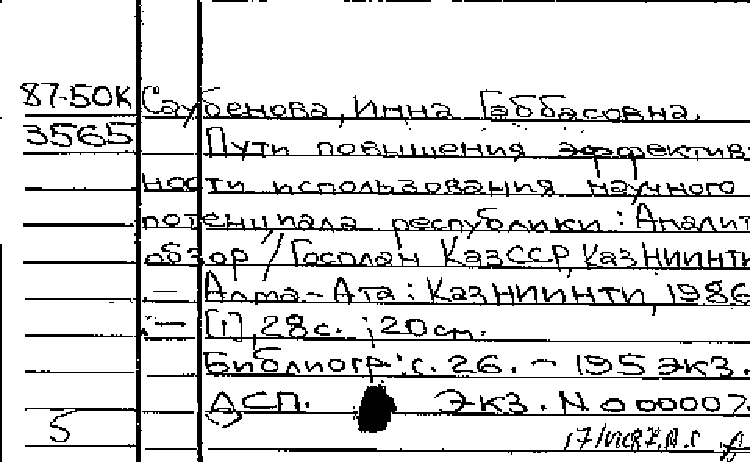 87-50К Саубенова, Инна Габбасовна.
3565 Пути повышения эффектив-
ности использования научного
потенциала республики: Аналит.
обзор / Госплан КазССР, КазНИИНТИ
— Алма-Ата: КазНИИНТИ, 1986
— [1], 28 с.; 20 см.
Библиогр.: с. 26. — 195 экз.
ДСП. Экз. N 000007.
5